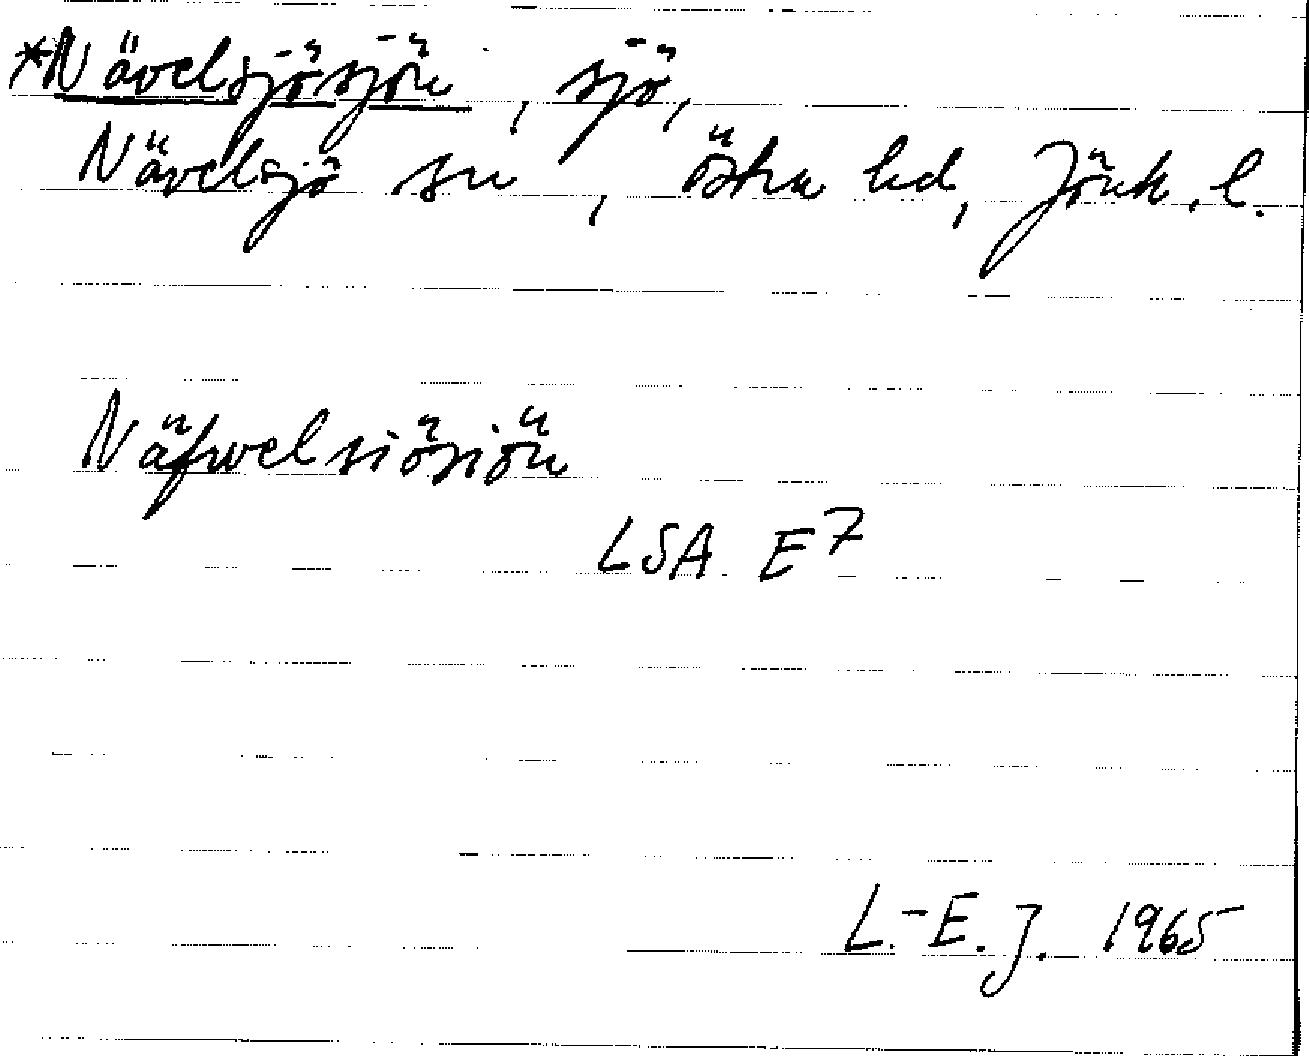 *Nävelsjösjön, sjö,
Nävelsjö sn, Östra hd, Jönk. l.
Näfwelsiösiön
LSA E7
L.-E. J. 1965